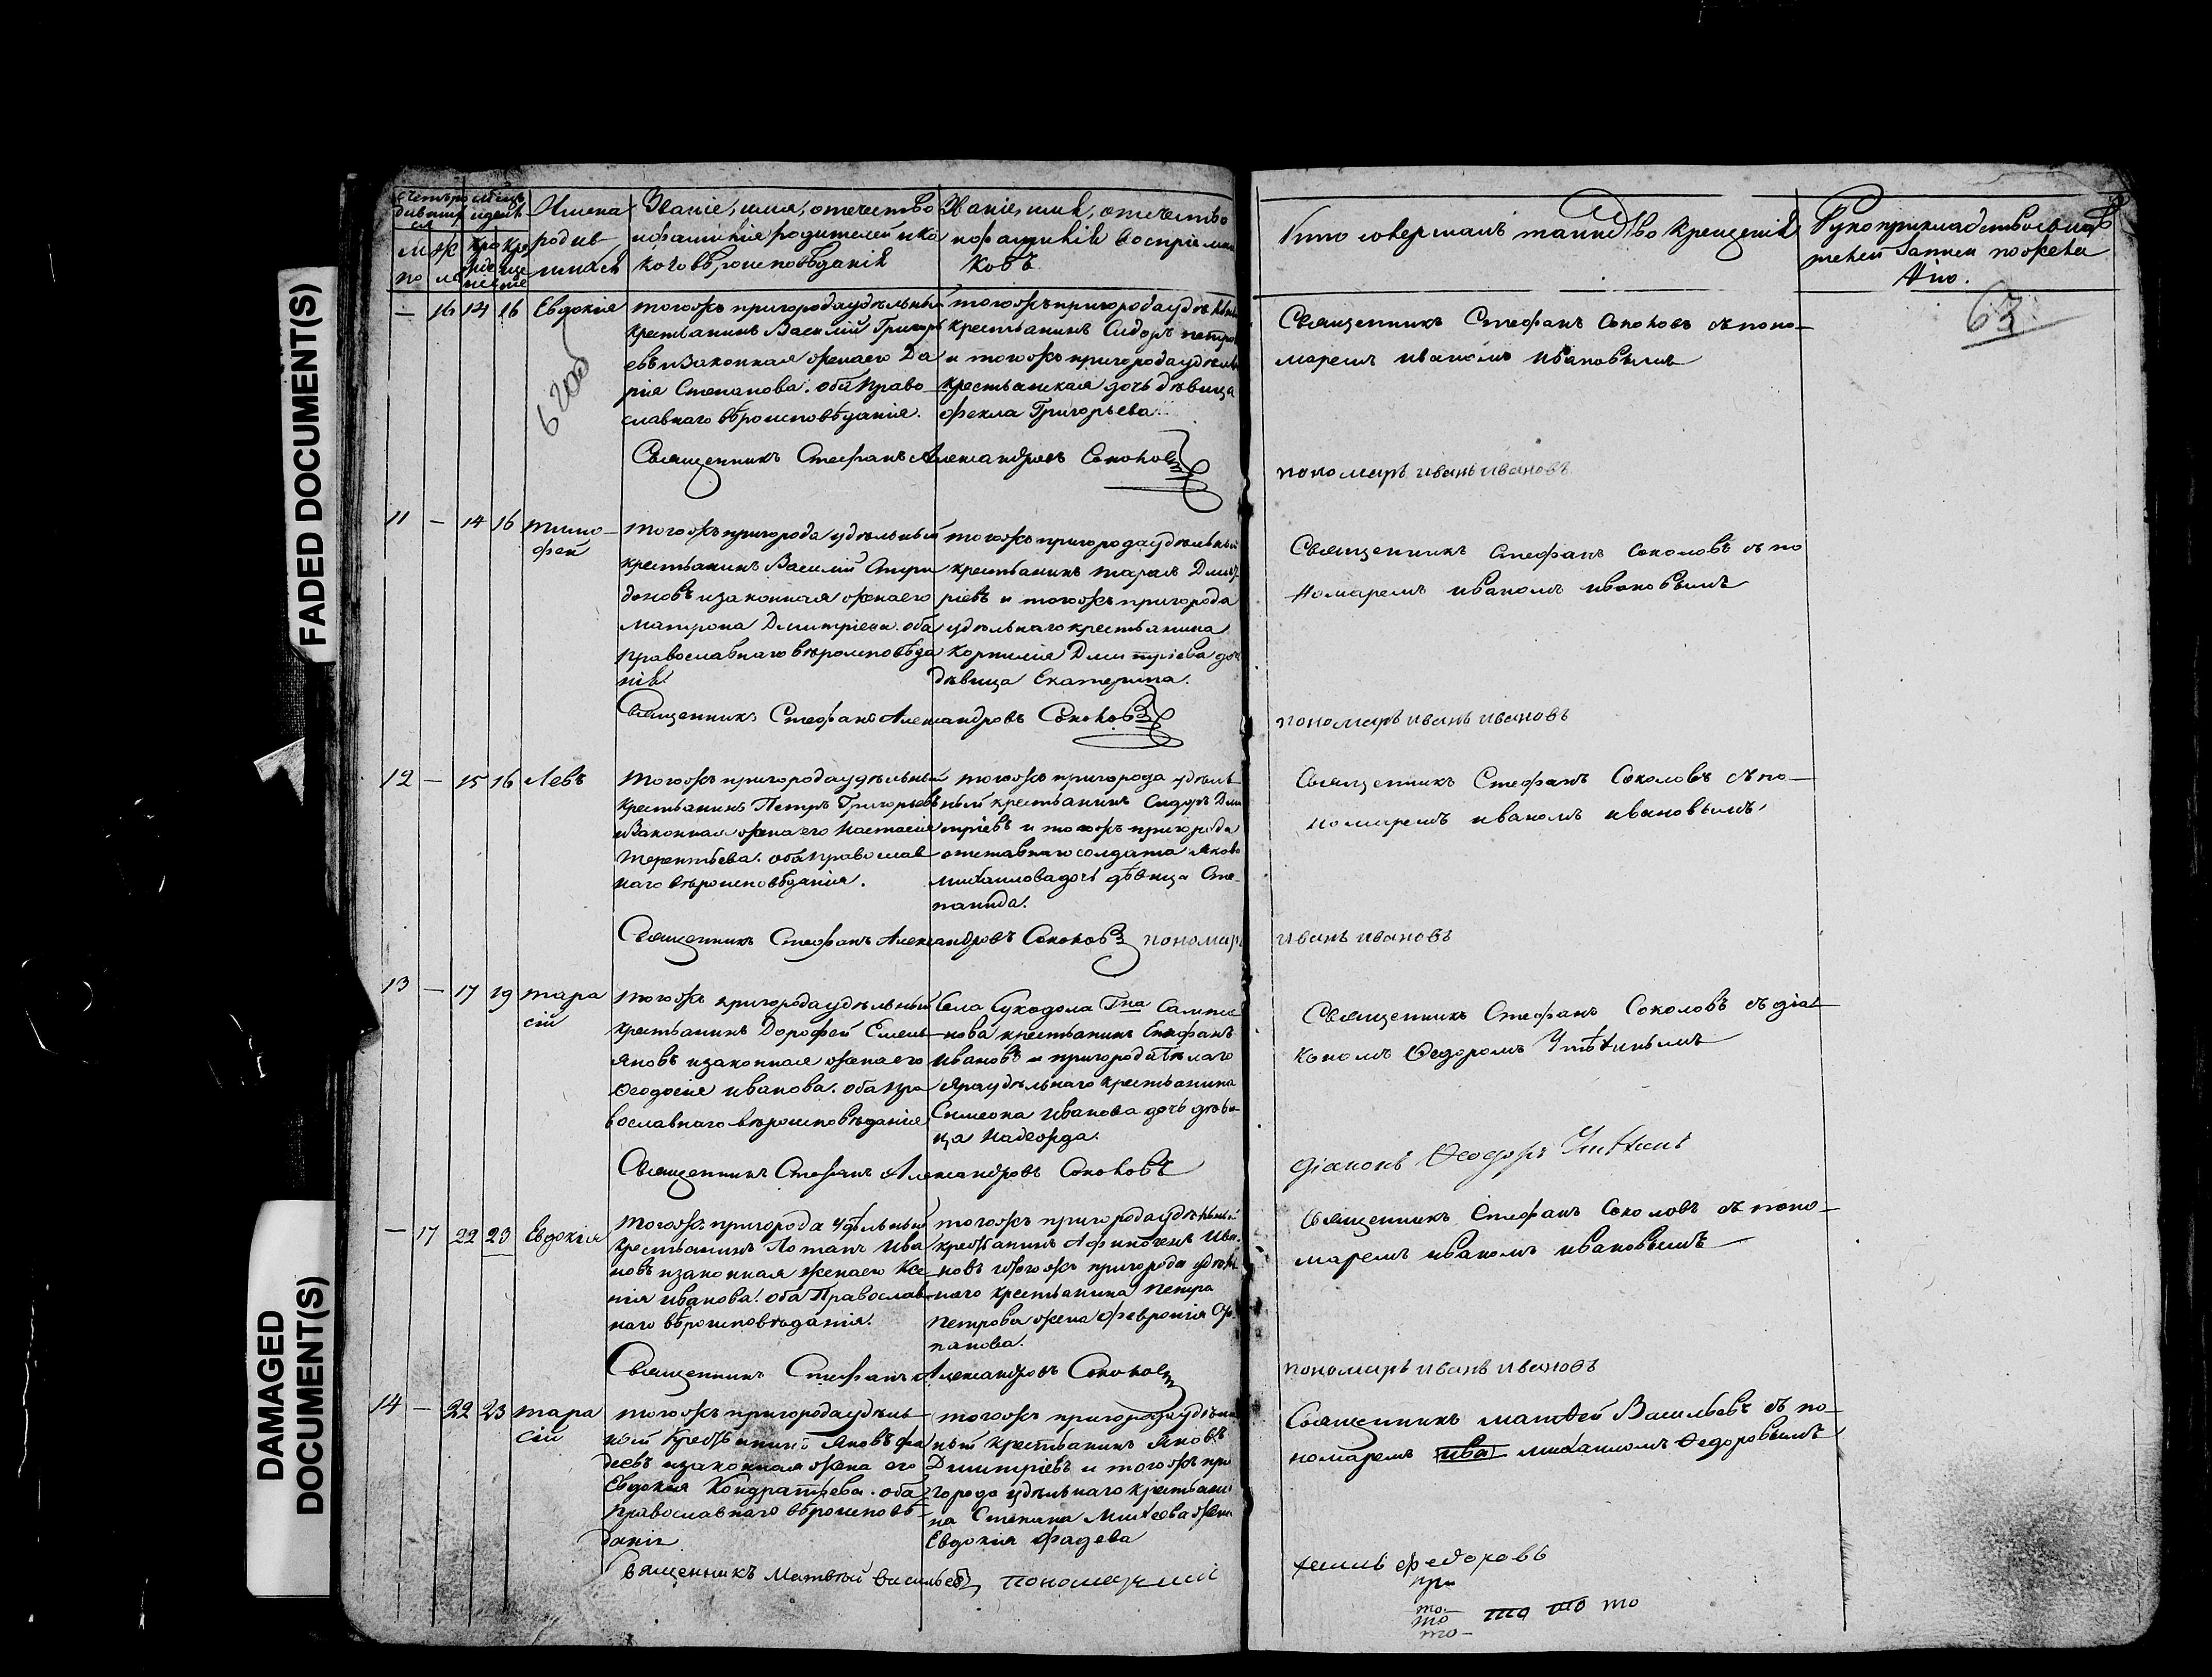 FADED DOCUMENT(S)
DAMAGED
DOCUMENT(S)
Имена
родив
шихся
Званіе, имя, отечество
и фамилія родителей и ка
кого вѣроисповѣданія
Званіе, имя, отечество
и фамилія воспріемни
ковъ
Кто совершалъ таинство крещенія
63
— 16 14 16 Евдокія
тогожъ пригорода удѣльный
крестьянинъ Василій Григорь
евъ и законная жена его Да
рія Степанова. оба право
славнаго вѣроисповѣданія.
тогожъ пригорода удѣльный
крестьянинъ Сидоръ петро
и тогожъ пригорода удѣльн
крестьянская дочь дѣвица
Фекла Григорьева.
Священникъ Стефанъ Соколовъ съ поно-
маремъ иваномъ ивановымъ
Священникъ Стефанъ Александровъ Соколовъ
пономарь иванъ ивановъ
11 — 14 16 тимо-
фей
тогожъ пригорода удѣльный
крестьянинъ Василій Спири
доновъ и законная жена его
Матрона Димитріева. оба
православнаго вѣроисповѣда
нія.
тогожъ пригорода удѣльный
крестьянинъ тарасъ Дмит
ріевъ и тогожъ пригорода
удѣльнаго крестьянина
Корнилія Дмитріева доч
дѣвица Екатерина.
Священникъ Стефанъ Соколовъ съ по
номаремъ иваномъ ивановымъ
Священникъ Стефанъ Александровъ Соколовъ
пономарь иванъ ивановъ
12 — 15 16 Левъ
тогожъ пригорода удѣльный
крестьянинъ Петръ Григорьевъ
и законная жена его Настасія
терентьева. оба православ
наго вѣроисповѣданія.
тогожъ пригорода удѣль
ный крестьянинъ Сидоръ Дми
тріевъ и тогожъ пригорода
отставнаго солдата Якова
михайлова дочь дѣвица Сте-
панида.
Священникъ Стефанъ Соколовъ съ по-
номаремъ иваномъ ивановымъ
Священникъ Стефанъ Александровъ Соколовъ пономарь
иванъ ивановъ
13 — 17 19 тара
сій
тогожъ пригорода удѣльный
крестьянинъ Дорофей Емель
яновъ и законная жена его
Ѳеодосія иванова. оба пра
вославнаго вѣроисповѣданія
Села Суходола Гна
нова крестьянинъ Епифанъ
ивановъ и пригорода Бѣлаго
Яра удѣльнаго крестьянина
Симеона иванова дочь дѣви-
ца Надежда.
Священникъ Стефанъ Соколовъ съ діа-
кономъ Ѳедоромъ
Священникъ Стефанъ Александровъ Соколовъ
діаконъ Ѳеодоръ
— 17 22 23 Евдокія
тогожъ пригорода удѣльный
крестьянинъ Потапъ Ива
новъ и законная жена его Ксе
нія иванова. оба Православ
наго вѣроисповѣданія.
тогожъ пригорода удѣльный
крестьянинъ Афиногенъ Ива
новъ и тогожъ пригорода удѣль
наго крестьянина петра
петрова жена Февронія
панова.
Священникъ Стефанъ Соколовъ съ поно-
маремъ иваномъ ивановымъ
Священникъ Стефанъ Александровъ Соколовъ
пономарь иванъ ивановъ
14 — 22 23 тара
сій
тогожъ пригорода удѣль
ной крестьянинъ Яковъ Фа
деевъ и законная жена его
Евдокія Кондратьева. оба
православнаго вѣроисповѣ
данія.
тогожъ пригорода удѣль
ный крестьянинъ Яковъ
Дмитріевъ и тогожъ при
города удѣльнаго крестьяни
на Степана Михеева жена
Евдокія Фадеева
Священникъ матвей Васильевъ съ по-
номаремъ ива михаиломъ Ѳедоровымъ
Священникъ Матвѣй васильевъ, пономарь ми
хаилъ Федоровъ
при
то-
то
то-
то то то